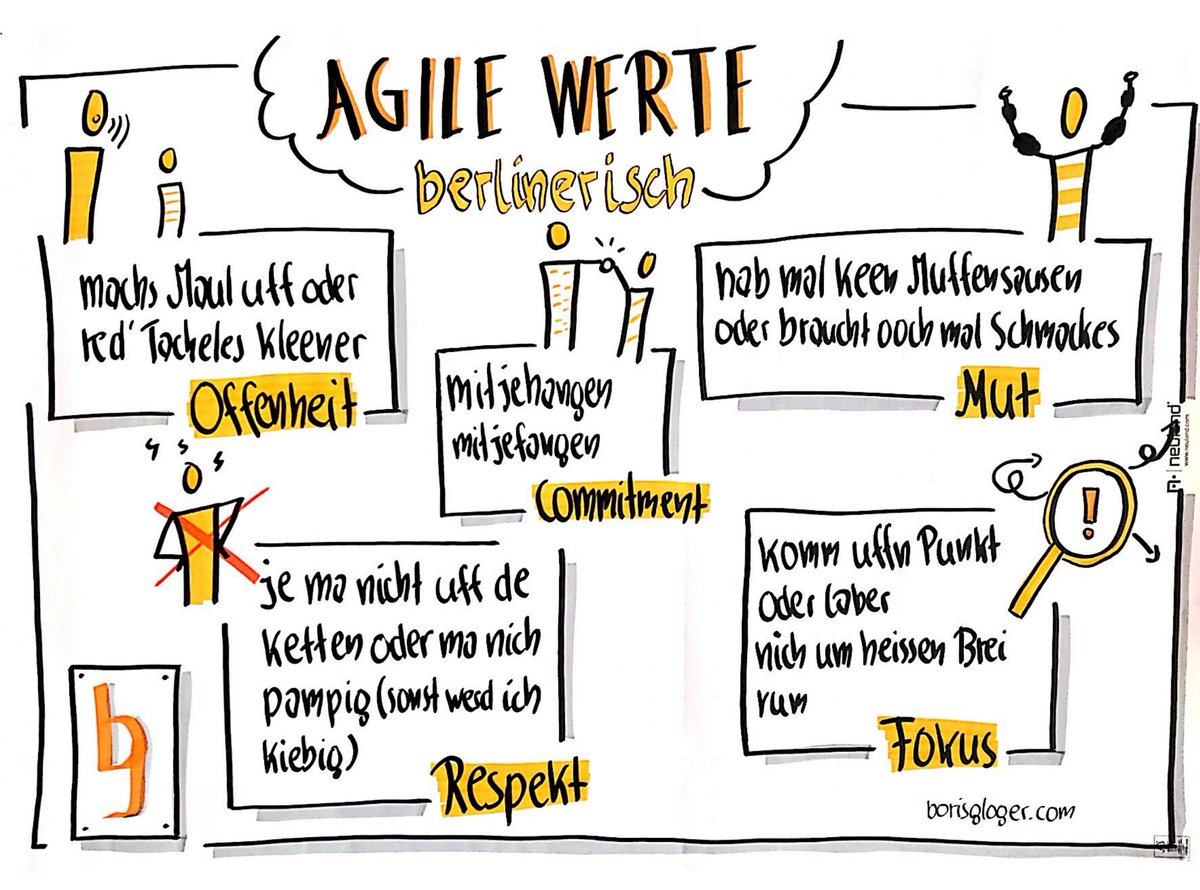 AGILE WERTE
berlinerisch
machs Maul uff oder
red' Tacheles Kleener
Offenheit
mitjehangen
mitjefangen
Commitment
hab mal keen Muffensausen
oder braucht ooch mal Schmackes
Mut
je ma nicht uff de
Ketten oder ma nich
pampig (sonst werd ich
kiebig)
Respekt
komm uffn Punkt
oder laber
nich um heissen Brei
rum
Fokus
!
bg
borisgloger.com
neuland
www.neuland.com